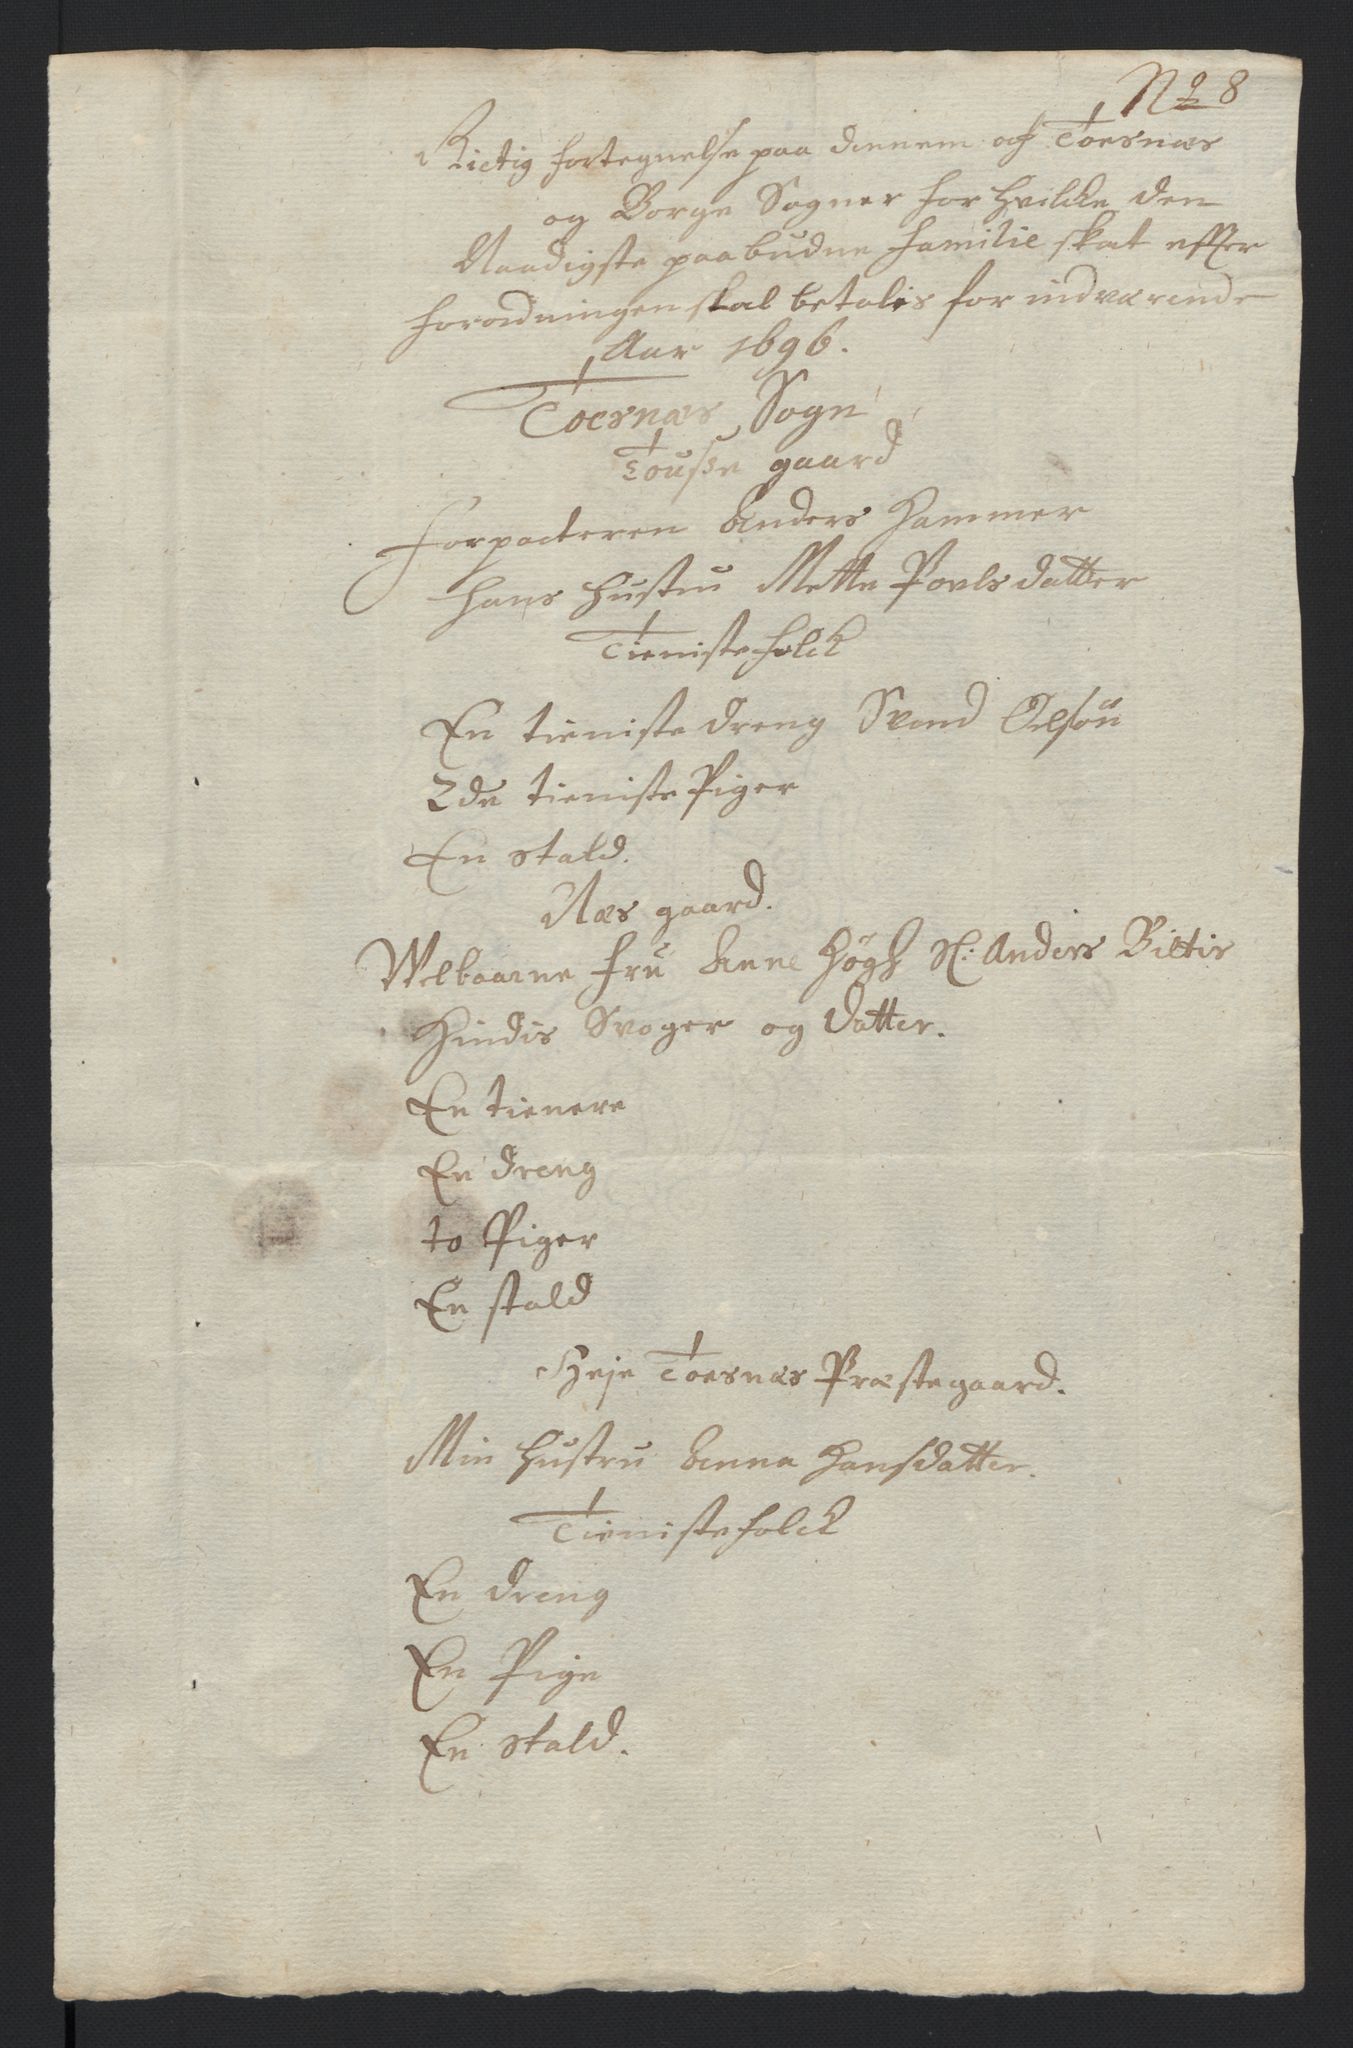 No 8
Rictig fortegnelse paa dennem af Toesnæs
og Borge Sogner for hvilcke den
Naadigste paabudne familie skat effter
forordningen skal betalis for indværende
Aar 1696.
Toesnæs Sogn
Tousse gaard
Forpacteren Anders Hammer
hans hustru Mette Povls datter
Tienistefolck
En tieniste dreng Svend Olsøn
2de tieniste Piger
En stald.
Næs gaard.
Welbaarne fru Anne Høgh Sl: Anders
Hindis Svoger og datter.
En tienere
En dreng
to Piger
En stald
Toesnæs Præstegaard.
Min hustru Anna Hansdatter.
Tienistefolck
En dreng
En Pige
En stald.